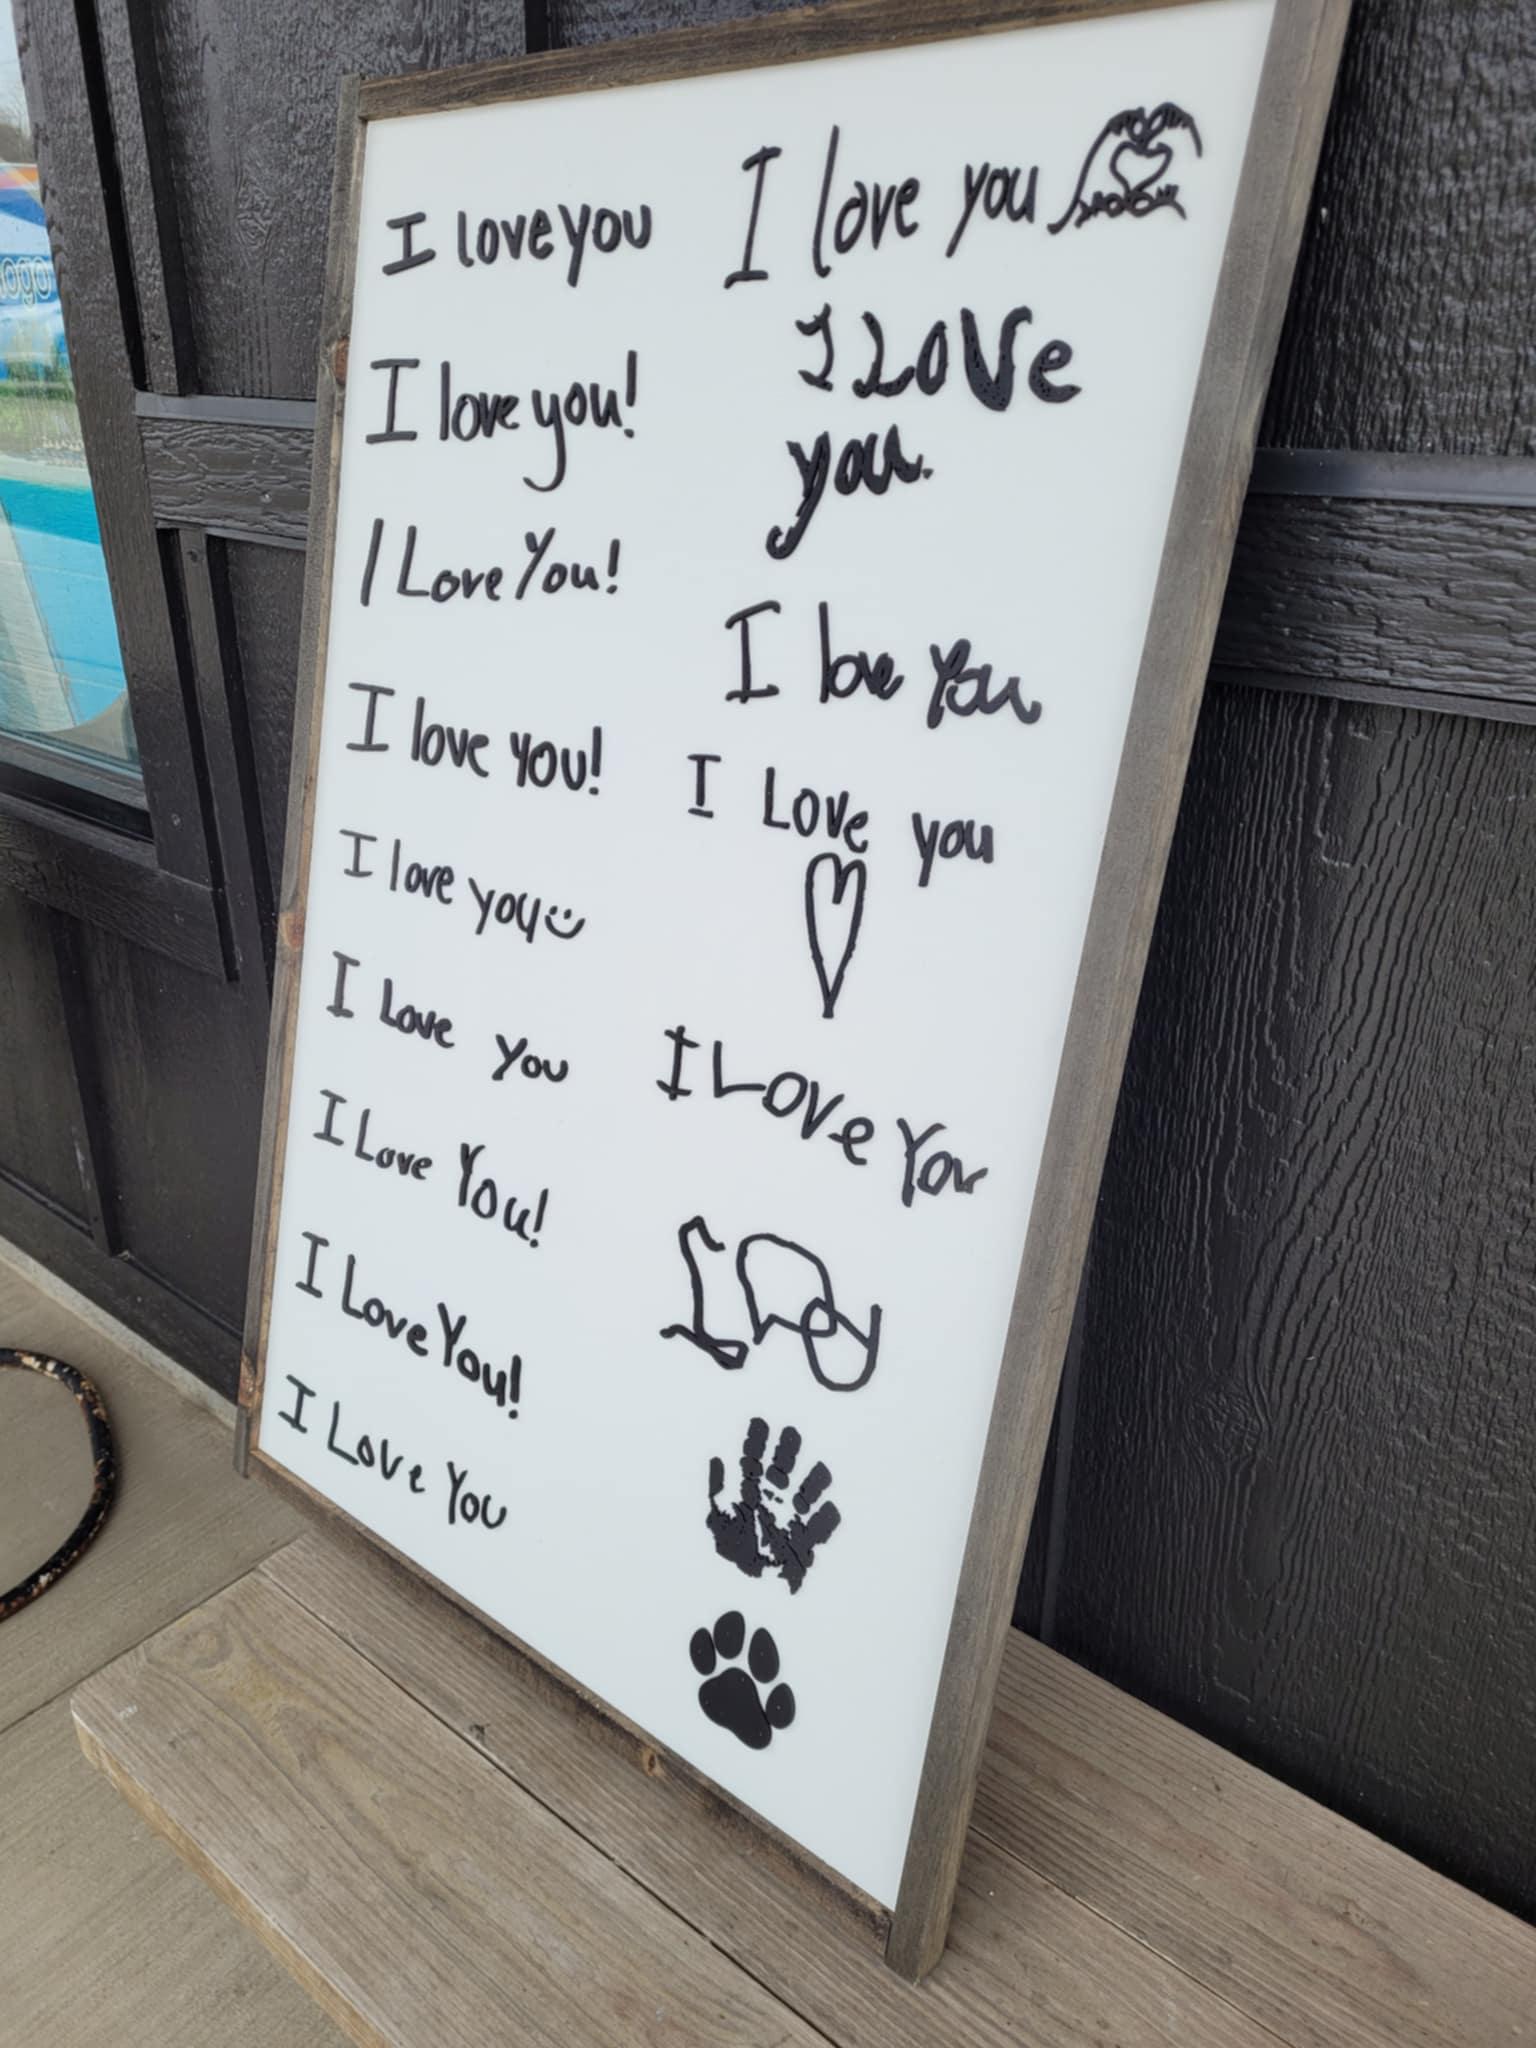 I love you
I love you!
I Love You!
I love you!
I love you
I Love you
I Love You!
I Love You!
I Love You
I love you
I LOVe
you.
I love You
I Love you
I LOVe You
ogo